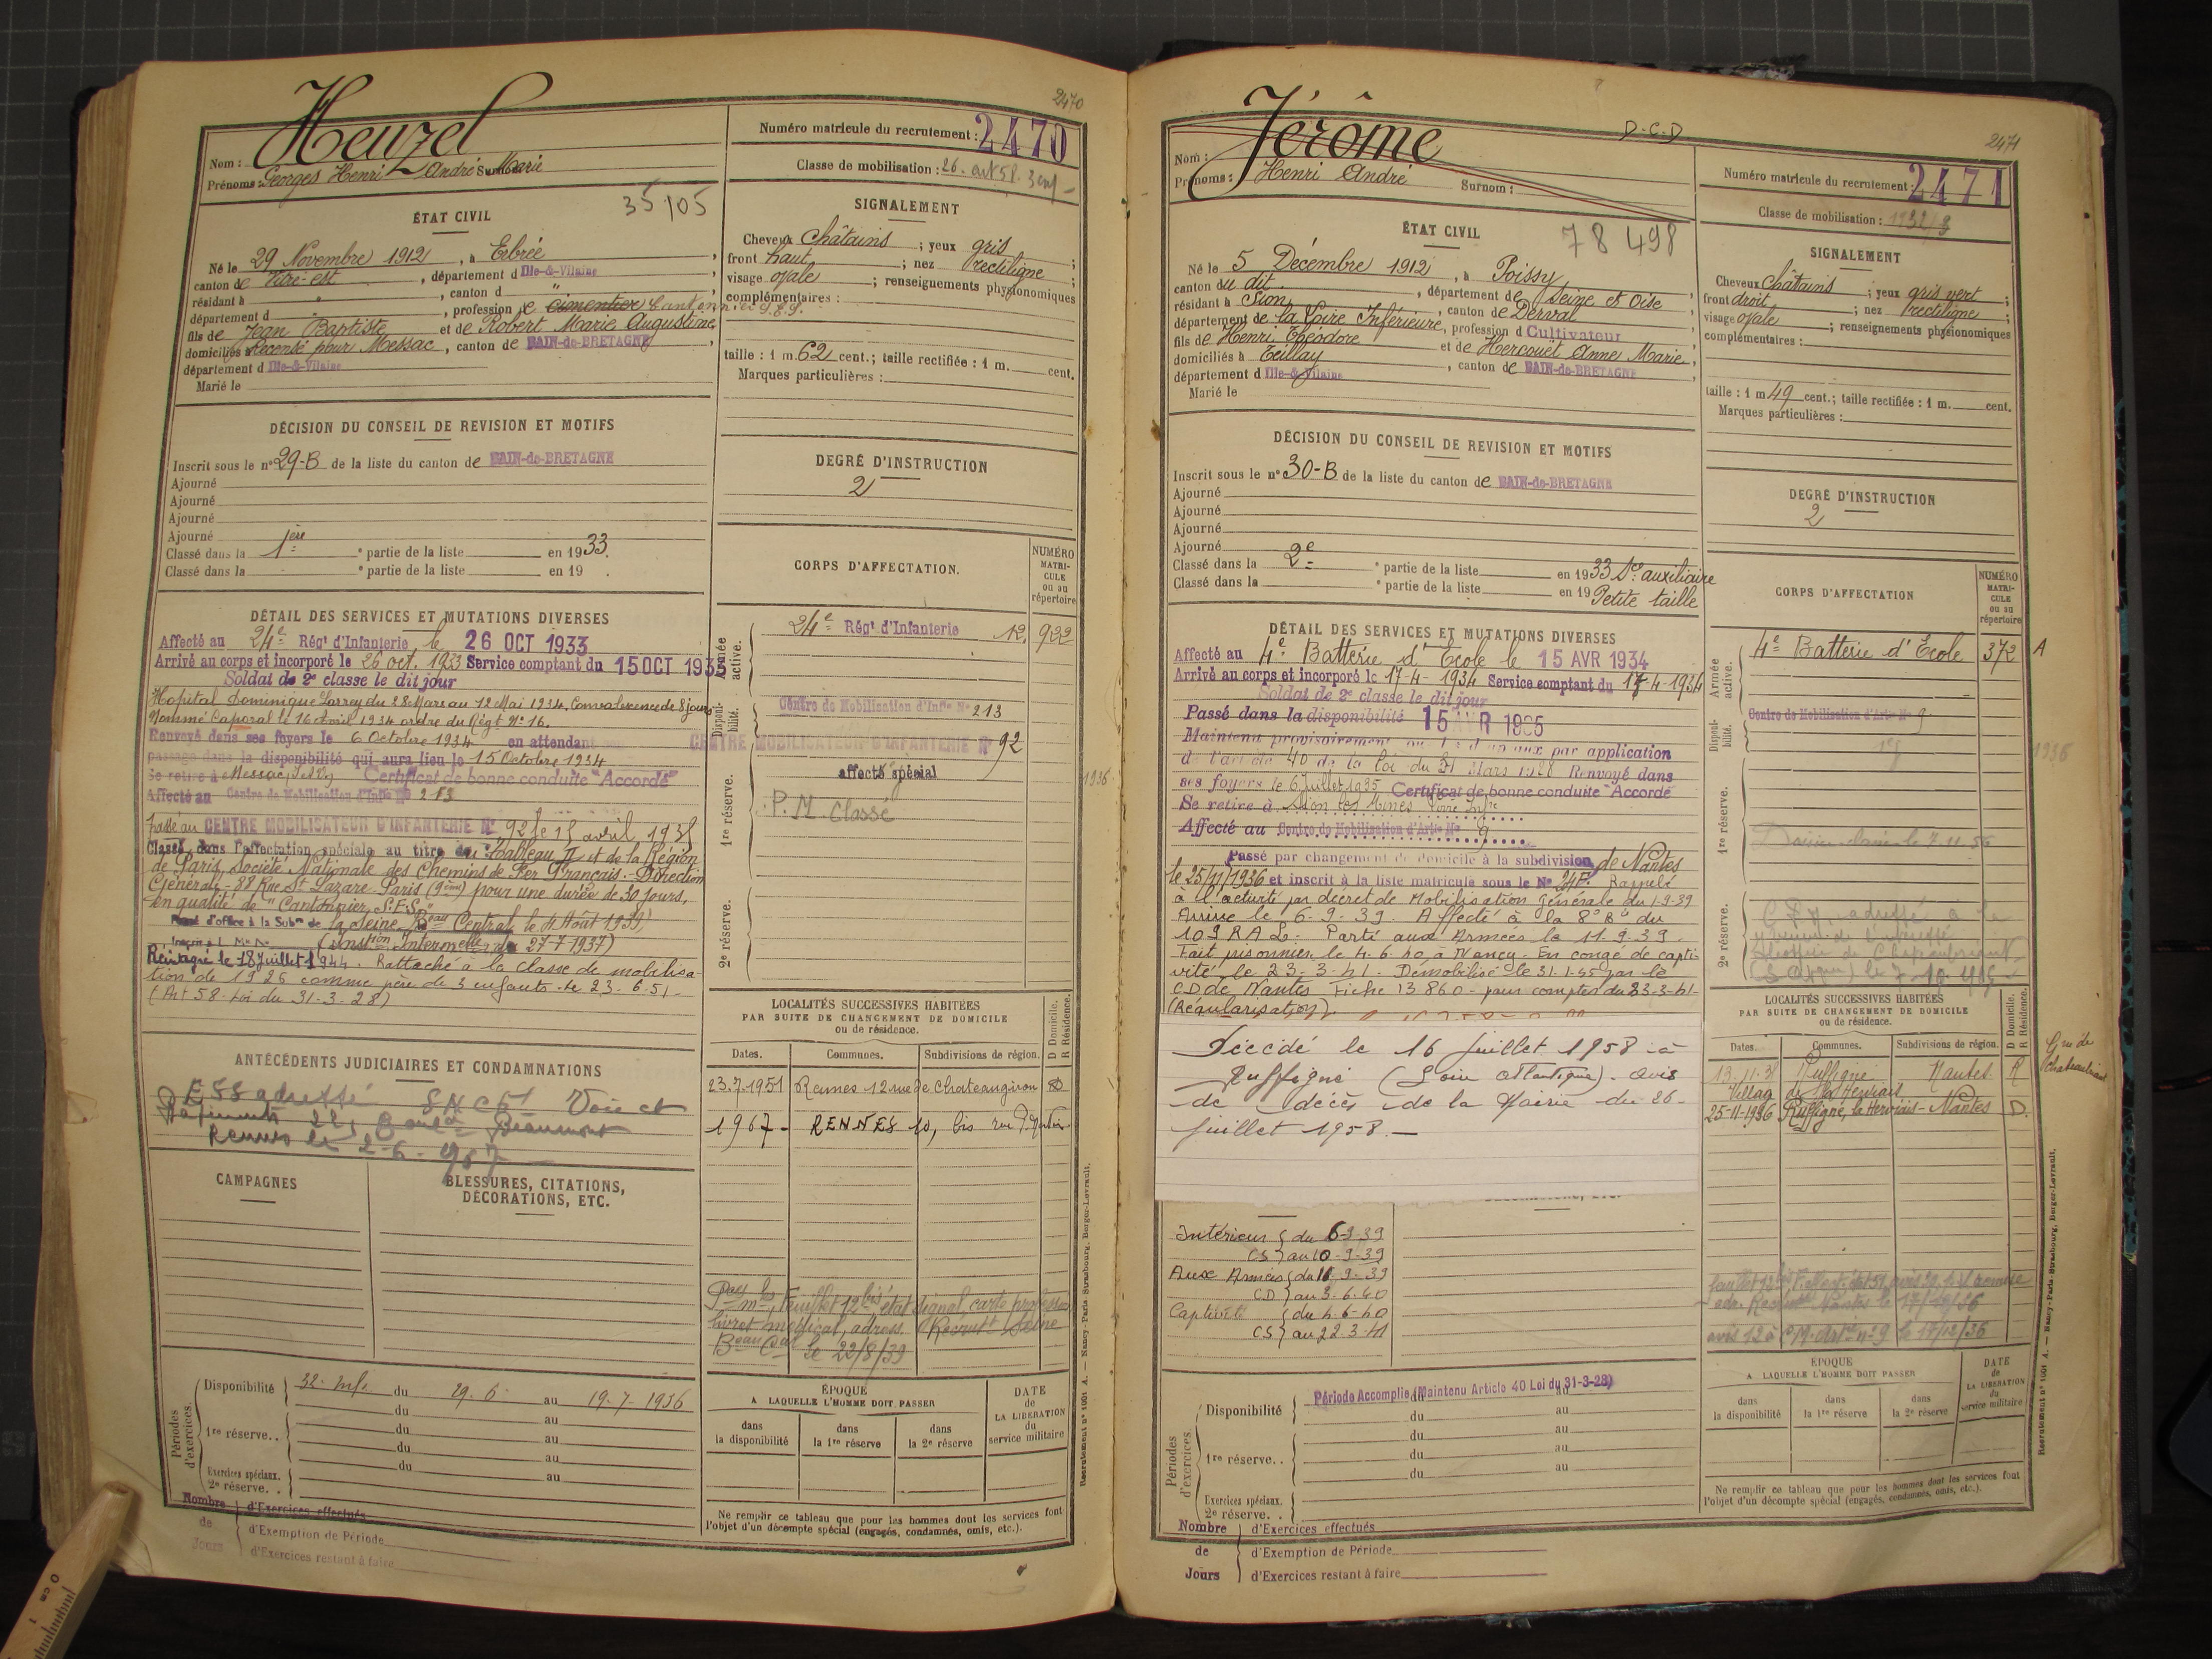 2470
Heuzel
Nom :
Prénoms : Georges Henri André Marie Surnom :
Numéro matricule du recrutement : 2470
Classe de mobilisation : 26. art 58. 3 enf
35105
ÉTAT CIVIL
Né le 29 Novembre 1912, à Erbrée
canton de Vitré-est, département d Ille-&-Vilaine
résidant à " , canton d "
département d , profession de cimentier Cantonnier S.E.S.
fils de Jean Baptiste et de Robert Marie Augustine
domiciliés à Recensé pour Messac, canton de BAIN-de-BRETAGNE
département d Ille-&-Vilaine
Marié le
SIGNALEMENT
Cheveux châtains ; yeux gris ;
front haut ; nez rectiligne ;
visage ovale ; renseignements physionomiques
complémentaires :
taille : 1 m. 62 cent. ; taille rectifiée : 1 m. cent.
Marques particulières :
DÉCISION DU CONSEIL DE REVISION ET MOTIFS
Inscrit sous le n° 29-B de la liste du canton de BAIN-de-BRETAGNE
Ajourné
Ajourné
Ajourné
Ajourné
Classé dans la 1ère partie de la liste en 1933.
Classé dans la e partie de la liste en 19 .
DEGRÉ D'INSTRUCTION
2
DÉTAIL DES SERVICES ET MUTATIONS DIVERSES
Affecté au 24e Régt d'Infanterie le 26 OCT 1933
Arrivé au corps et incorporé le 26 oct. 1933 Service comptant du 15 OCT 1933
Soldat de 2e classe le dit jour
Hopital Dominique Larrey du 28 Mars au 12 Mai 1934. Convalescence de 8 jours
Nommé Caporal le 16 Avril 1934 ordre du Régt N° 16.
Renvoyé dans ses foyers le 6 Octobre 1934 en attendant
passage dans la disponibilité qui aura lieu le 15 Octobre 1934
Se retire à Messac I et V Certificat de bonne conduite "Accordé"
Affecté au Centre de Mobilisation d'Infie N° 213
passé au CENTRE MOBILISATEUR D'INFANTERIE N° 92 le 15 avril 1935
Classé dans l'affectation spéciale au titre du Tableau II et de la Région
de Paris, Société Nationale des Chemins de Fer Français. Direction
Générale - 88 Rue St Lazare Paris (9ème) pour une durée de 30 jours,
en qualité de "Cantonnier S.E.S."
d'office à la Subon de la Seine Beau Central le 4 Août 1939,
(Instion Interm elle du 27-7-1937)
Réintégré le 18 Juillet 1944. Rattaché à la classe de mobilisa-
tion de 1926 comme père de 3 enfants le 23.6.51-
(Art 58. Loi du 31-3-28)
CORPS D'AFFECTATION.
NUMÉRO MATRICULE ou au répertoire
Armée active.
24e Régt d'Infanterie 12. 922
Disponibilité.
Centre de Mobilisation d'Infie N° 213
CENTRE MOBILISATEUR D'INFANTERIE N° 92
affecté spécial
1936
1re réserve.
P.M. Classé
2e réserve.
ANTÉCÉDENTS JUDICIAIRES ET CONDAMNATIONS
ESS adressé SNCF Voie et
Bâtiments 22, Bould Beaumont
Rennes le 2-6-1957
LOCALITÉS SUCCESSIVES HABITÉES
PAR SUITE DE CHANGEMENT DE DOMICILE
ou de résidence.
D Domicile. R Résidence.
Dates. Communes. Subdivisions de région.
23.7.1951 Rennes 12 rue de Chateaugiron D
1967 - RENNES 10, bis rue
Feuillet 12 bis, état signal, carte profession
livret médical, adress. Recrutt Seine
Beau Cal le 22/8/39
CAMPAGNES
BLESSURES, CITATIONS, DÉCORATIONS, ETC.
Périodes d'exercices.
Disponibilité 32. Inf. du 29.6. au 19.7-1936
du au
1re réserve. . du au
du au
du au
Exercices spéciaux. au
2e réserve. .
Nombre de Jours
d'Exercices effectués
d'Exemption de Période
d'Exercices restant à faire
ÉPOQUE
A LAQUELLE L'HOMME DOIT PASSER
dans la disponibilité
dans la 1re réserve
dans la 2e réserve
DATE de LA LIBÉRATION du service militaire
Ne remplir ce tableau que pour les hommes dont les services font
l'objet d'un décompte spécial (engagés, condamnés, omis, etc.).
Recrutement n° 1001 A. — Nancy-Paris-Strasbourg, Berger-Levrault.
2471
D.C.D
Jérôme
Nom :
Prénoms : Henri André Surnom :
Numéro matricule du recrutement : 2471
Classe de mobilisation : 1932/3
78 498
ÉTAT CIVIL
Né le 5 Décembre 1912, à Poissy
canton du dit , département de Seine et Oise
résidant à Sion, canton de Derval
département de la Loire Inférieure, profession d Cultivateur
fils de Henri Théodore et de Hercouët Anne Marie
domiciliés à Teillay, canton de BAIN-de-BRETAGNE
département d Ille-&-Vilaine
Marié le
SIGNALEMENT
Cheveux châtains ; yeux gris vert ;
front droit ; nez rectiligne ;
visage ovale ; renseignements physionomiques
complémentaires :
taille : 1 m. 49 cent. ; taille rectifiée : 1 m. cent.
Marques particulières :
DÉCISION DU CONSEIL DE REVISION ET MOTIFS
Inscrit sous le n° 30-B de la liste du canton de BAIN-de-BRETAGNE
Ajourné
Ajourné
Ajourné
Ajourné
Classé dans la 2e partie de la liste en 1933 Sce auxiliaire
Classé dans la e partie de la liste en 19 Petite taille
DEGRÉ D'INSTRUCTION
2
DÉTAIL DES SERVICES ET MUTATIONS DIVERSES
Affecté au 4e Batterie d'Ecole le 15 AVR 1934
Arrivé au corps et incorporé le 17-4-1934 Service comptant du 17-4-1934
Soldat de 2e classe le dit jour
Passé dans la disponibilité 15 AVR 1935
Maintenu provisoirement par application
de l'article 40 de la loi du 31 Mars 1928 Renvoyé dans
ses foyers le 6 Juillet 1935 Certificat de bonne conduite "Accordé
Se retire à Sion les Mines Loire Infre
Affecté au Centre de Mobilisation d'Artie N° 9
Passé par changement de domicile à la subdivision de Nantes
le 25/11/1936 et inscrit à la liste matricule sous le N° 24F. Rappelé
à l'activité par décret de Mobilisation Générale du 1-9-39
Arrivé le 6-9-39. Affecté à la 8° Bie du
109 RAL. Parti aux Armées le 11.9.39.
Fait prisonnier le 4.6.40 à Nancy. En congé de capti-
vité le 23-3-41. Démobilisé le 31.1.45 par le
CD de Nantes Fiche 13860 - pour compter du 23-3-41-
(Régularisation)
Décédé le 16 juillet 1958 à
Ruffigné (Loire Atlantique). Avis
de décès de la Mairie du 26-
juillet 1958.—
CORPS D'AFFECTATION
NUMÉRO MATRICULE ou au répertoire
Armée active.
4e Batterie d'Ecole 372 A
Disponibilité.
Centre de Mobilisation d'Artie N° 9
1936
1re réserve.
2e réserve.
LOCALITÉS SUCCESSIVES HABITÉES
PAR SUITE DE CHANGEMENT DE DOMICILE
ou de résidence.
D Domicile. R Résidence.
Dates. Communes. Subdivisions de région.
Ruffigné Nantes R
Village de la Herviais
25-11-1936 Ruffigné, la Herviais - Nantes D.
avis 12 à C.M. Artie n° 9 le 17/12/36
Intérieur { du 6-9-39
CS } au 10-9-39
Aux Armées { du 11-9-39
CD } au 3-6-40
Captivité { du 4-6-40
CS } au 22-3-41
Périodes d'exercices.
Période Accomplie (Maintenu Article 40 Loi du 31-3-28)
Disponibilité du au
du au
1re réserve. . du au
du au
du au
Exercices spéciaux.
2e réserve. .
Nombre de Jours
d'Exercices effectués
d'Exemption de Période
d'Exercices restant à faire
ÉPOQUE
A LAQUELLE L'HOMME DOIT PASSER
dans la disponibilité
dans la 1re réserve
dans la 2e réserve
DATE de LA LIBÉRATION du service militaire
Ne remplir ce tableau que pour les hommes dont les services font
l'objet d'un décompte spécial (engagés, condamnés, omis, etc.).
Recrutement n° 1001 A. — Nancy-Paris-Strasbourg, Berger-Levrault.
0 cm 1